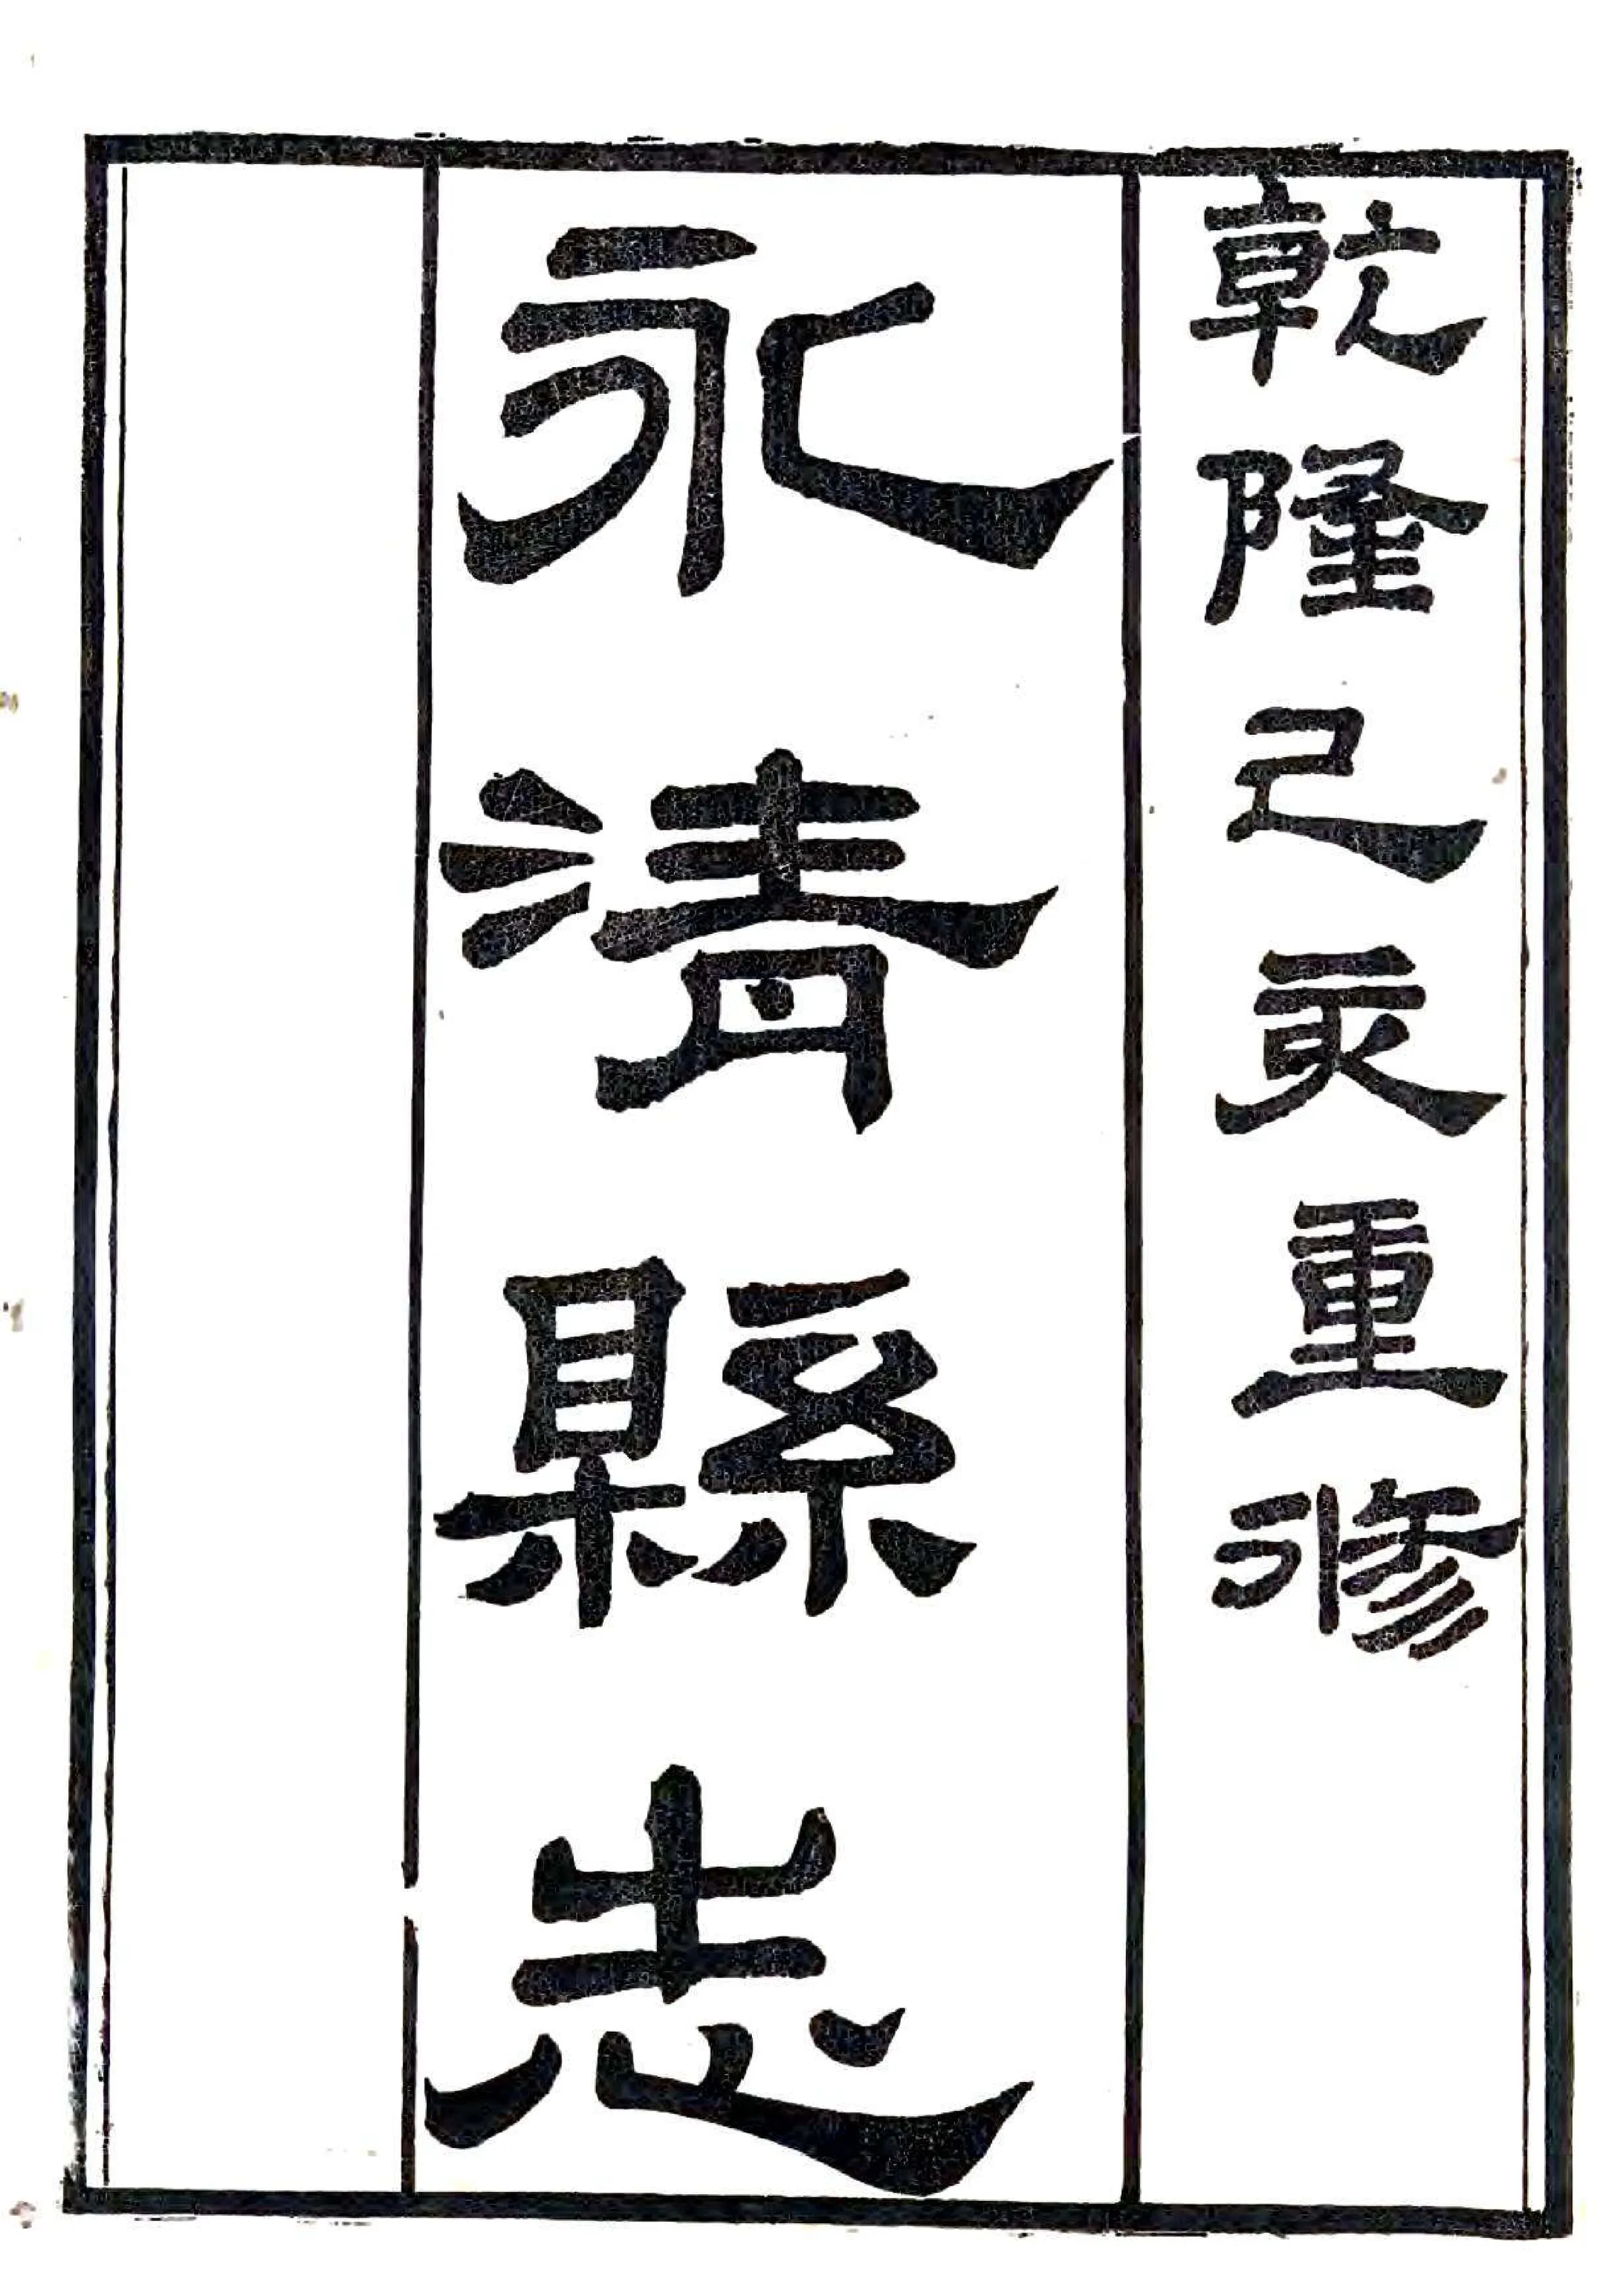 乾隆己亥重修
永清縣志